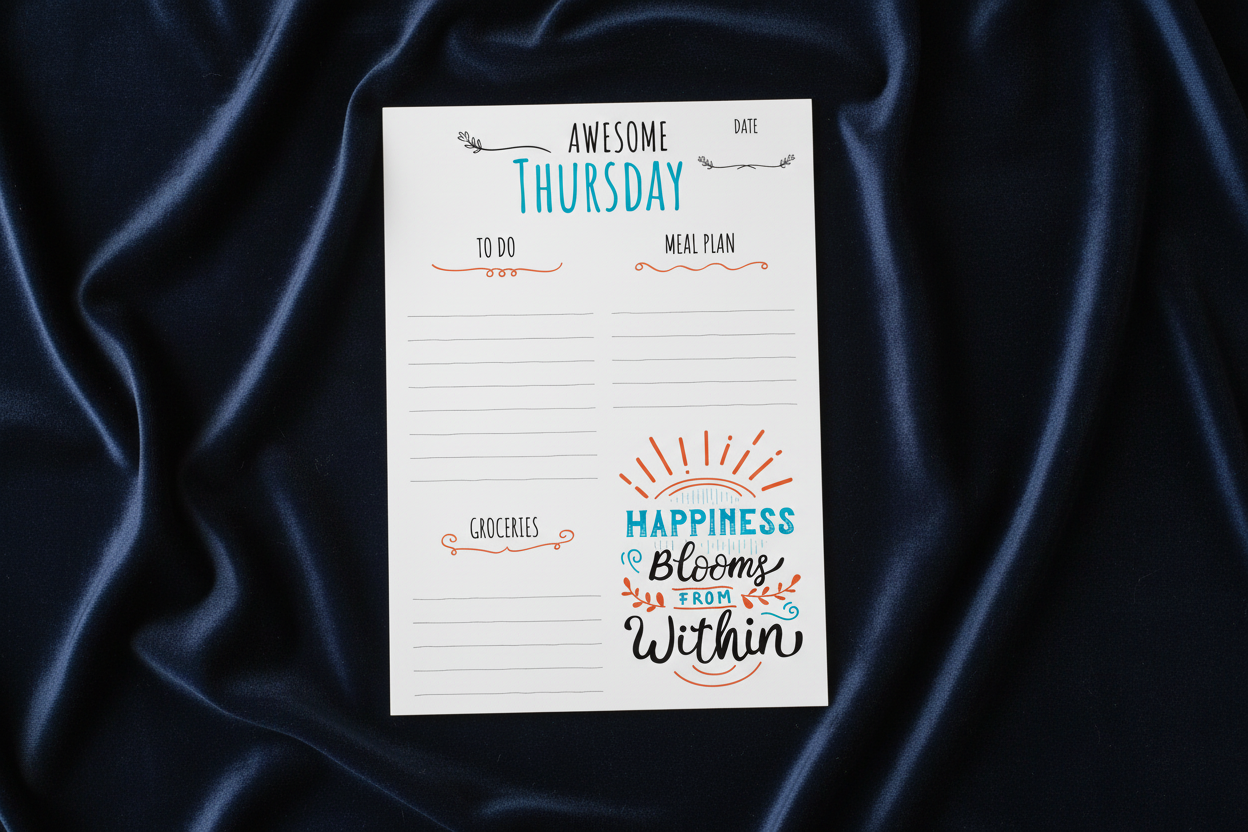 AWESOME
DATE
THURSDAY
TO DO
MEAL PLAN
GROCERIES
HAPPINESS
Blooms
FROM
Within